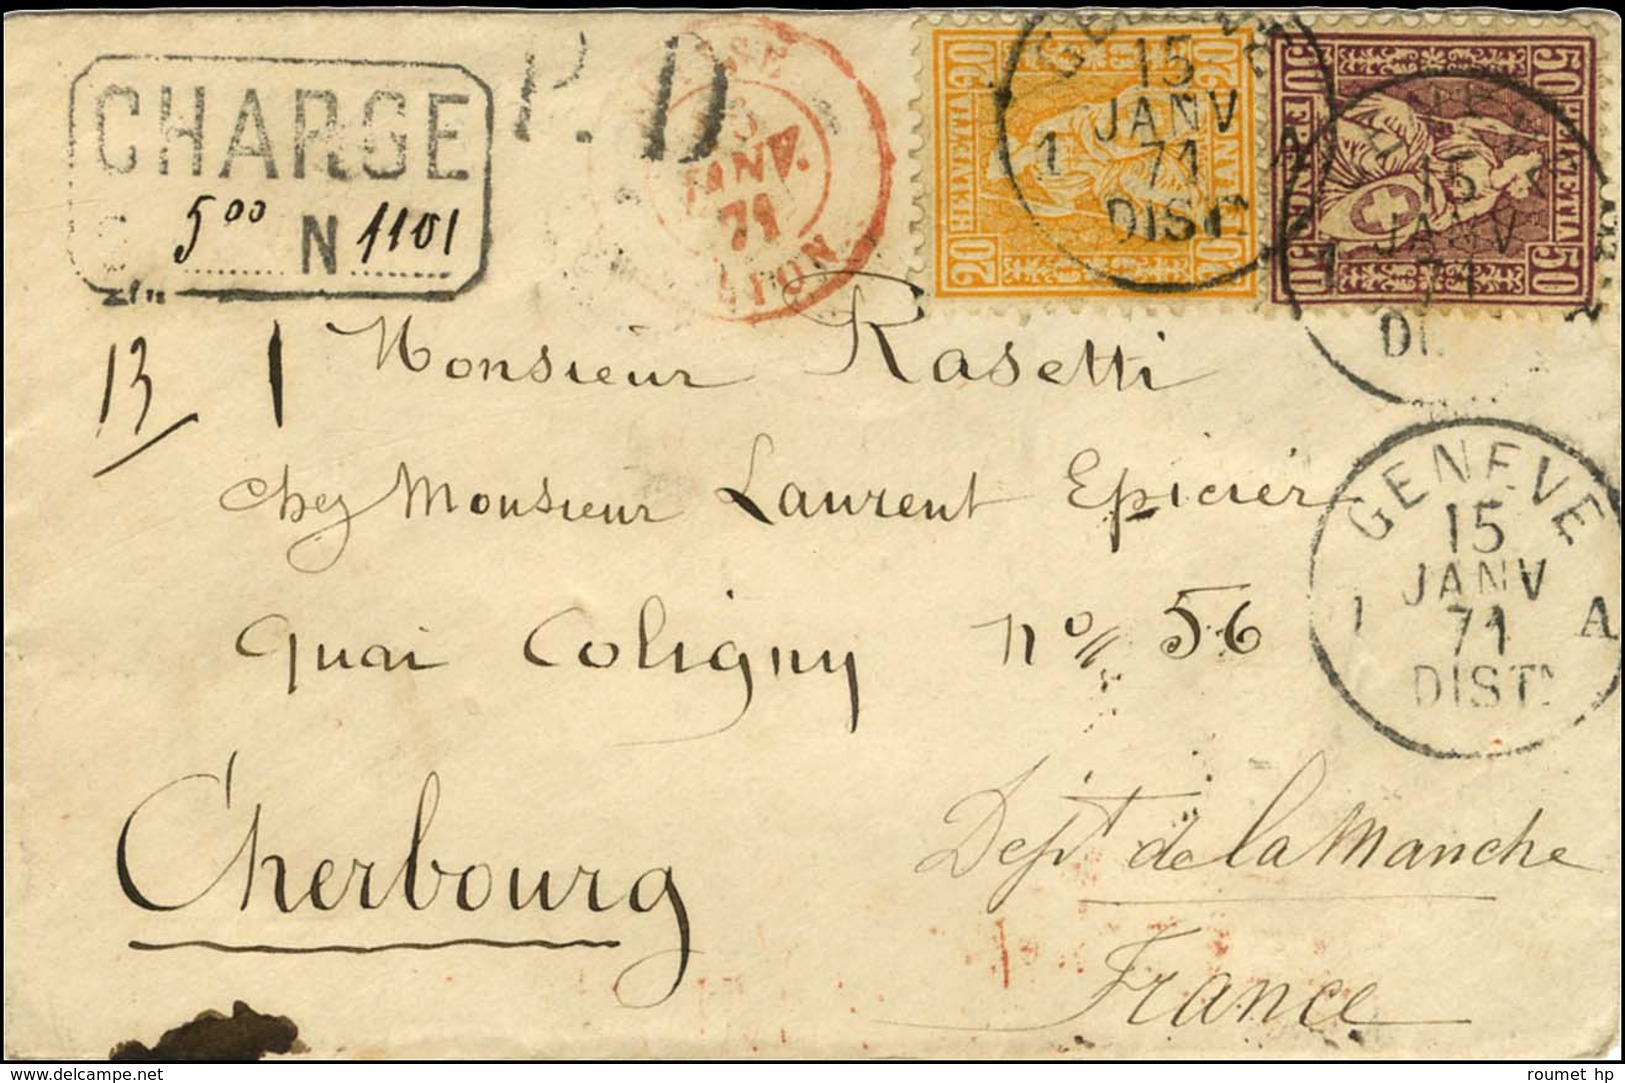 CHARGE
5⁰⁰ N 1101
P.D
JANV.
71
LYON
20 HELVETIA FRANCO 20
50 HELVETIA FRANCO 50
15
JANV
71
DIST.
1 A
15
JANV
71
13
1
Monsieur Rasetti
chez Monsieur Laurent Epicier
Quai Coligny nº 56
Cherbourg
Dept de la Manche
France
GENEVE
15
JANV
71
1 A
DIST.
www.delcampe.net
roumet hp